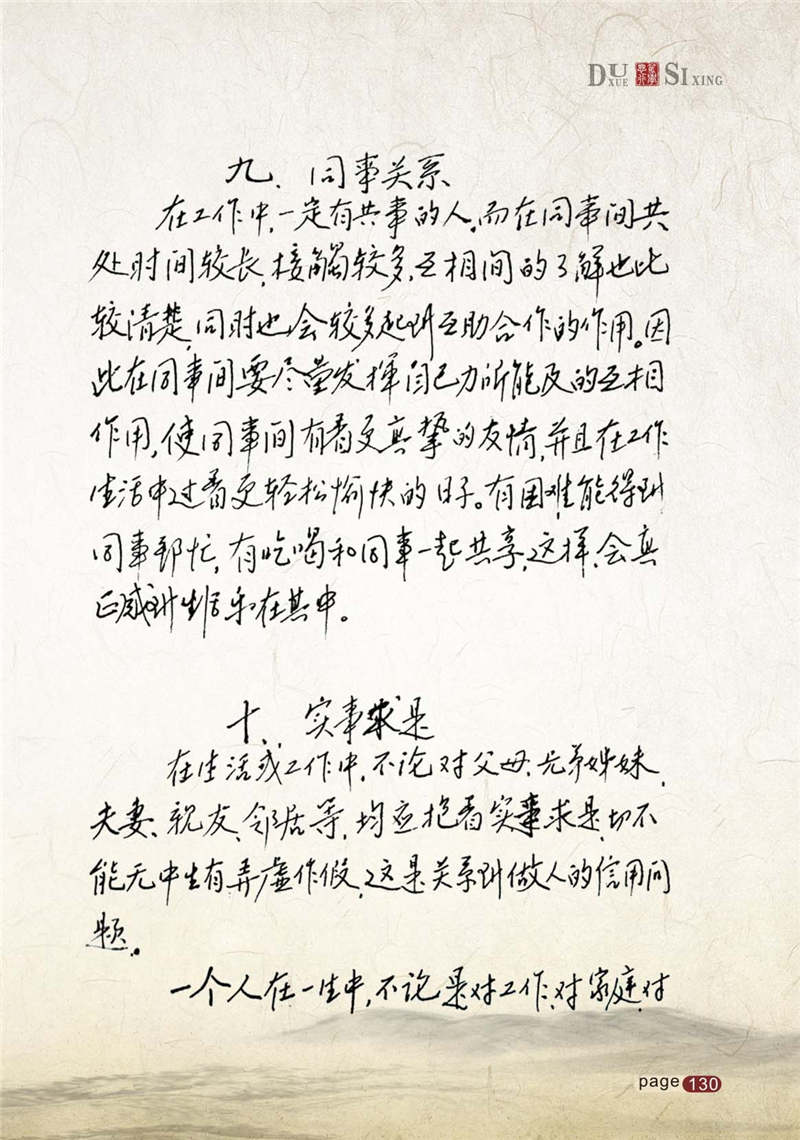 DUXUE SIXING
九、同事关系
在工作中,一定有共事的人。而在同事间共
处时间较长,接触较多,互相间的了解也比
较清楚,同时也会较多起到互助合作的作用。因
此在同事间要尽量发挥自己力所能及的互相
作用,使同事间有着更真挚的友情,并且在工作
生活中过着更轻松愉快的日子。有困难能得到
同事帮忙,有吃喝和同事一起共享,这样,会真
正感到生活乐在其中。
十、实事求是
在生活或工作中,不论对父母、兄弟姊妹,
夫妻、親友、邻居等,均应抱着实事求是,切不
能无中生有弄虚作假,这是关系到做人的信用问
题。
一个人在一生中,不论是对工作,对家庭,对
page 130